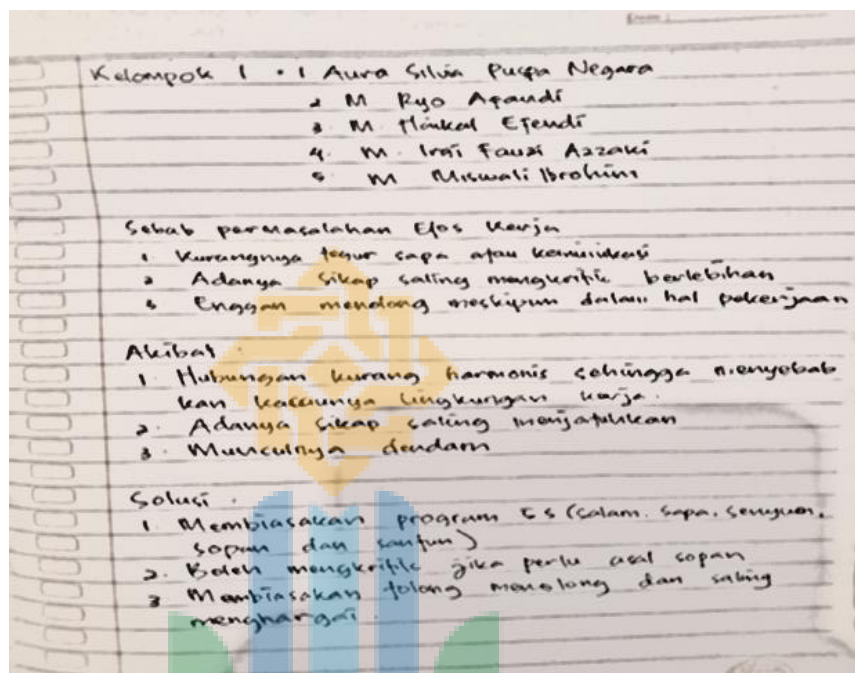 Kelompok 1 . 1 Aura Silvia Puspa Negara
2 M Ryo Apandi
3 M. Haikal Efendi
4. M. Irgi Fauzi Azzaki
5 M Miswali Ibrohim
Sebab permasalahan Etos Kerja
1. Kurangnya tegur sapa atau komunikasi
2 Adanya sikap saling mengkritik berlebihan
3 Enggan menolong meskipun dalam hal pekerjaan
Akibat .
1. Hubungan kurang harmonis sehingga menyebab
kan kacaunya lingkungan kerja.
2. Adanya sikap saling menjatuhkan
3. Munculnya dendam
Solusi .
1. Membiasakan program 5s (salam. sapa. senyum.
sopan dan santun)
2. Boleh mengkritik jika perlu asal sopan
3 Membiasakan tolong menolong dan saling
menghargai.